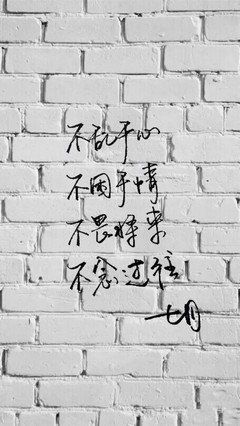 不乱于心
不困于情
不畏将来
不念过往
一七月